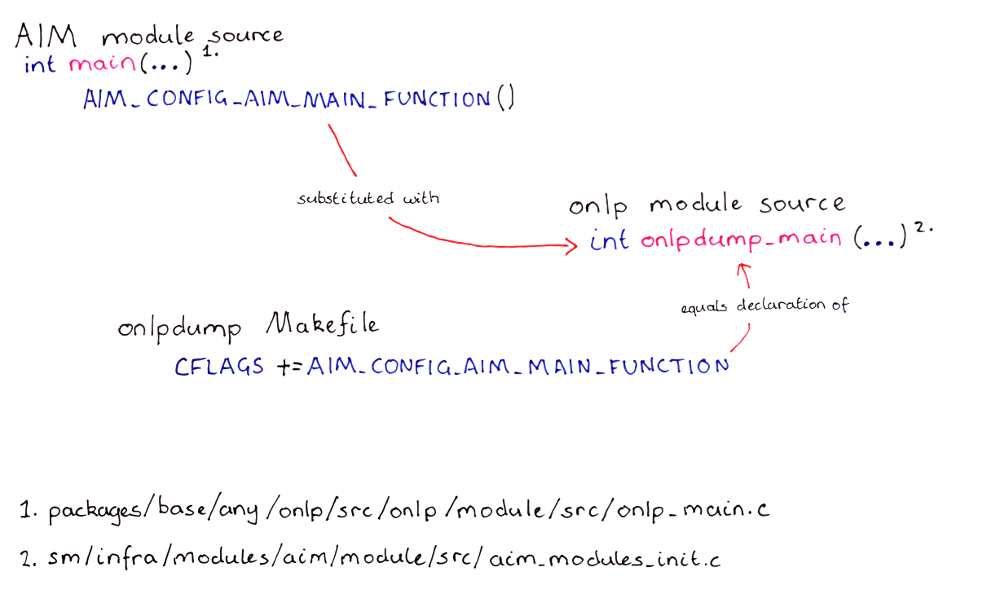 AIM module source
int main(...) 1.
AIM_CONFIG_AIM_MAIN_FUNCTION()
substituted with
onlp module source
int onlpdump_main (...) 2.
equals declaration of
onlpdump Makefile
CFLAGS += AIM_CONFIG_AIM_MAIN_FUNCTION
1. packages/base/any/onlp/src/onlp/module/src/onlp_main.c
2. sm/infra/modules/aim/module/src/aim_modules_init.c